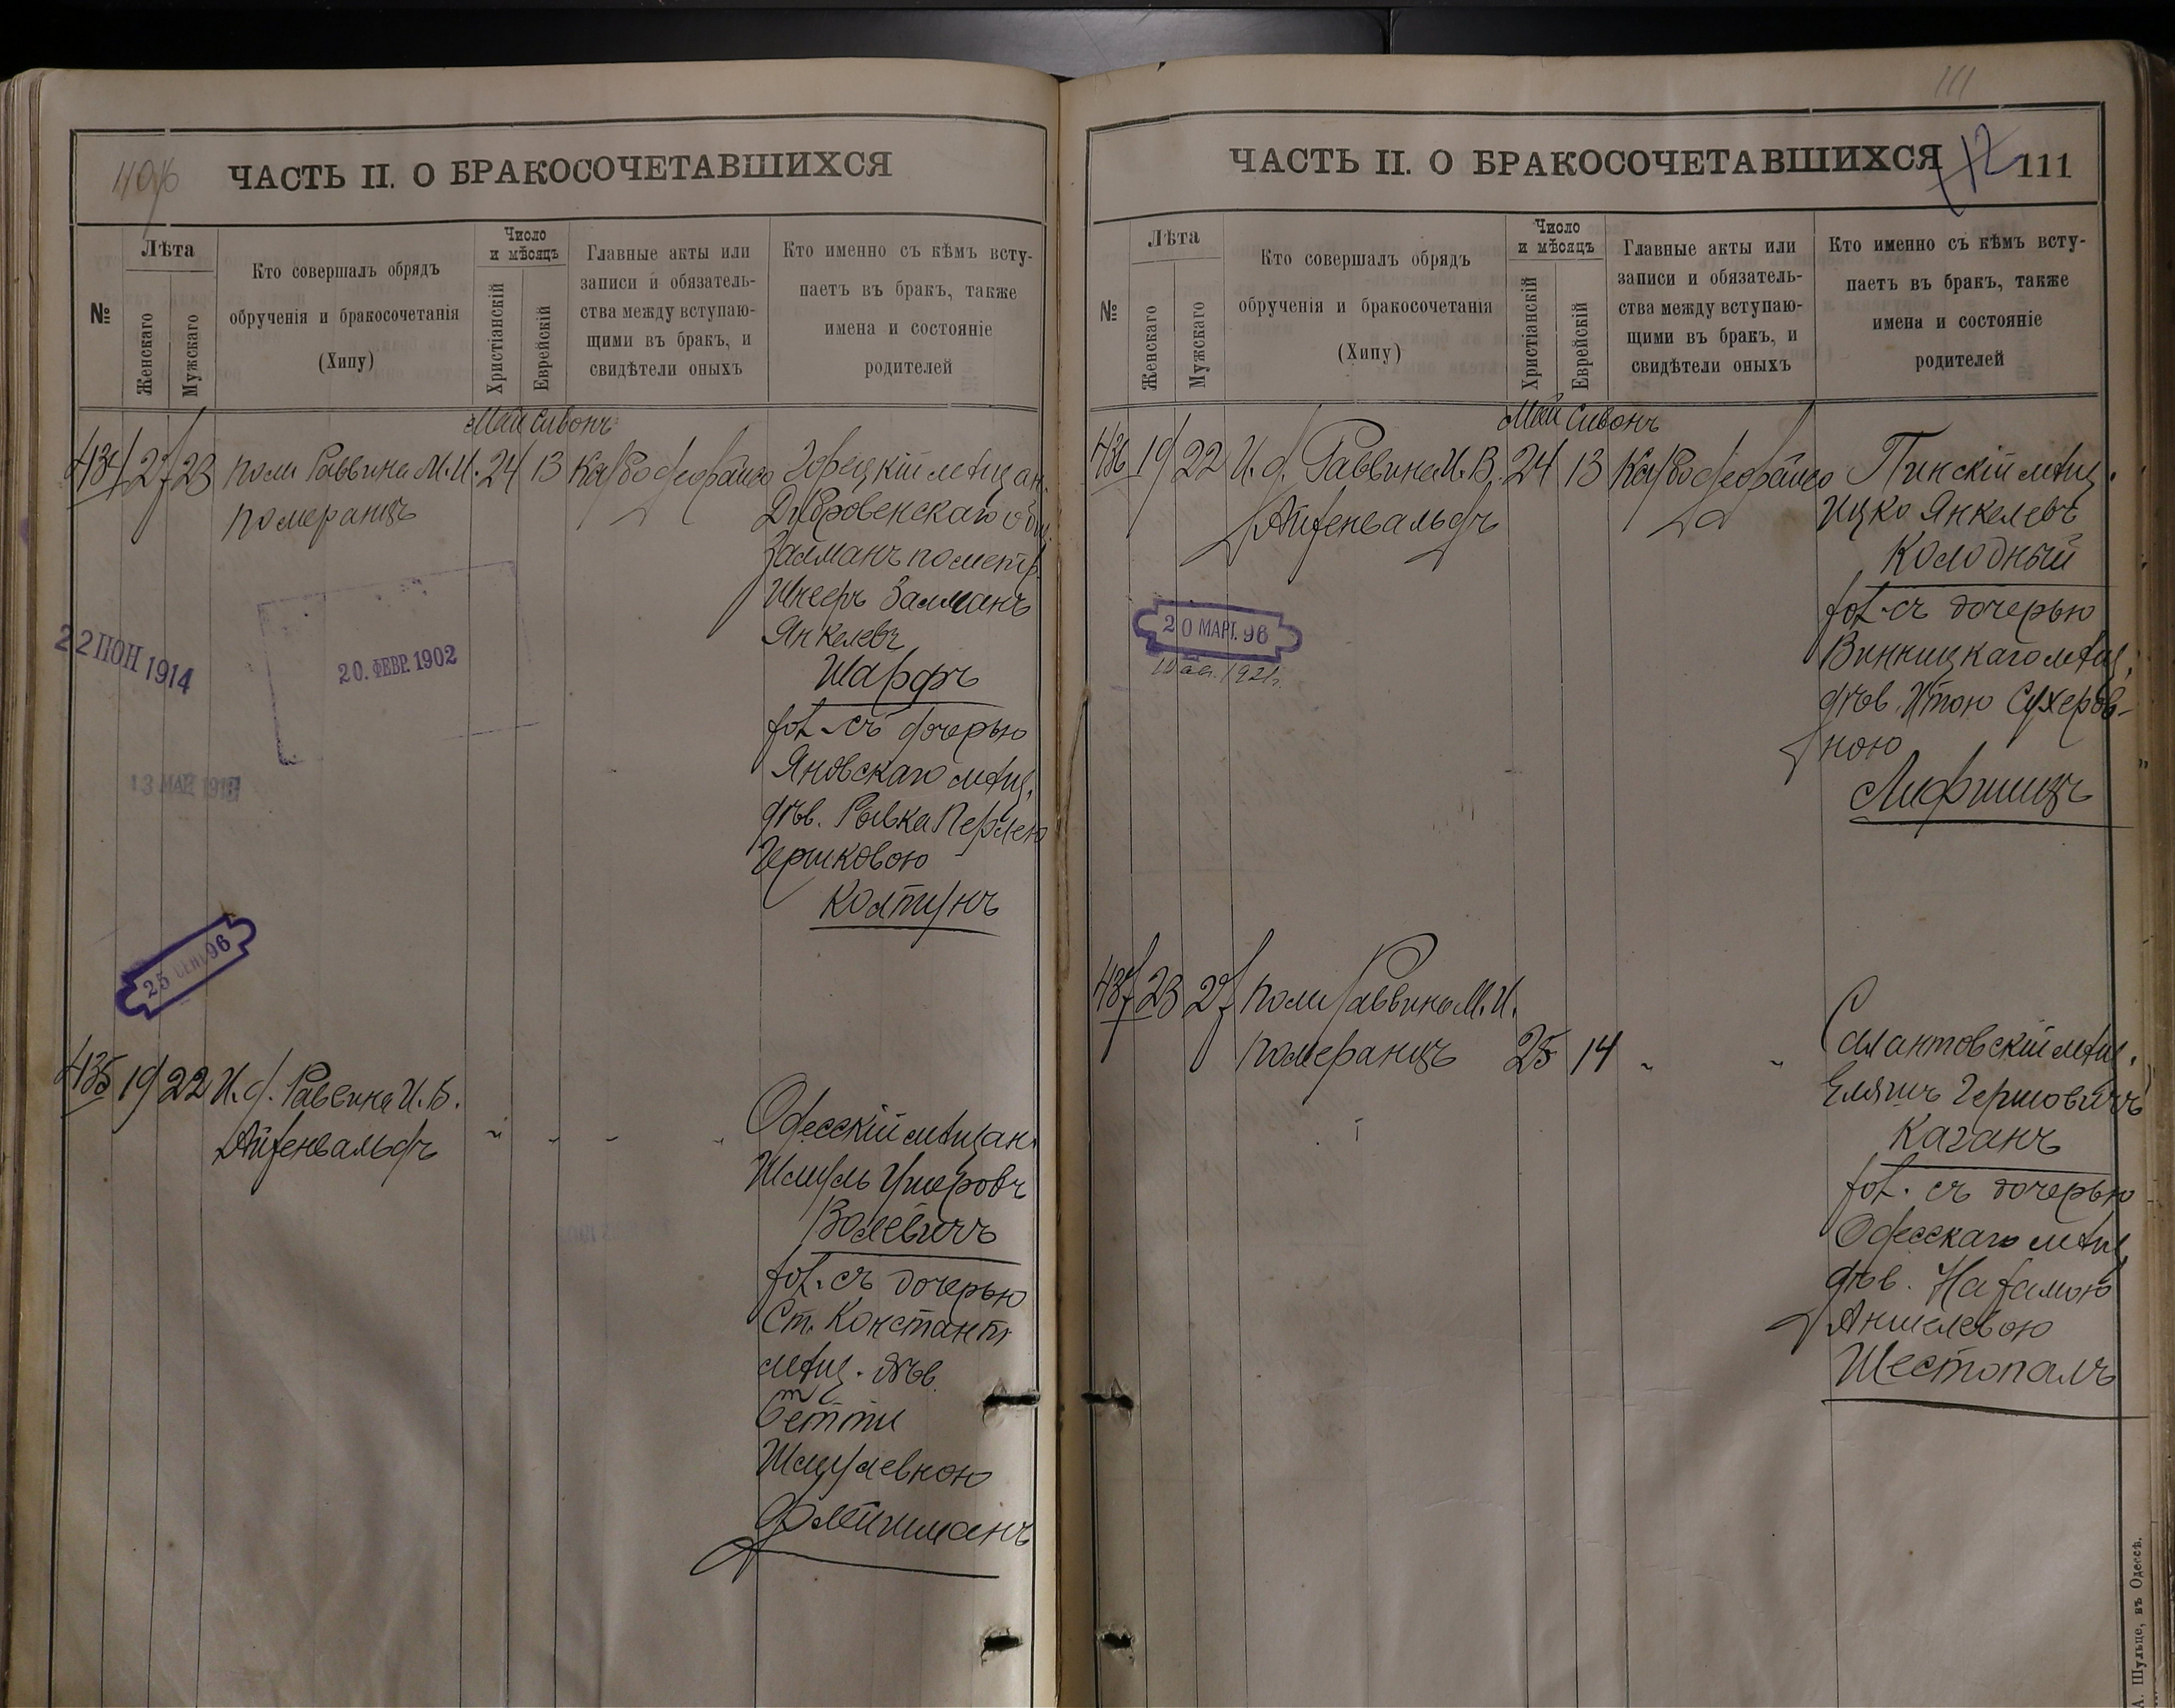 ЧАСТЬ II. О БРАКОСОЧЕТАВШИХСЯ
№
Лѣта
Женскаго
Мужскаго
Кто совершалъ обрядъ
обрученія и бракосочетанія
(Хипу)
Число
и мѣсяцъ
Христіанскій
Еврейскій
Главные акты или
записи и обязатель-
ства между вступаю-
щими въ бракъ, и
свидѣтели оныхъ
Кто именно съ кѣмъ всту-
паетъ въ бракъ, также
имена и состояніе
родителей
Май Сивонъ
434 27 23 пом Раввина М. И. 24 13
Померанцъ
Горецкій мѣщан.
Дубровенскаго общ.
Залманъ
Шнееръ Залманъ
Янкелевъ
Шарфъ
хол. съ дочерью
Яновскаго мѣщ.
дѣв. Рывка Перлею
Гершковою
Колтунъ
22 ІЮН 1914
20. ФЕВР. 1902
13 МАЯ
25 СЕНТ 96
435 19 22 И. д. Раввина И. В.
Айзенвальдъ
Одесскій мѣщан.
Шмуль Ушеровъ
Волевичъ
хол. съ дочерью
Ст. Констант
мѣщ. дѣв.
Бетти
Шмулевною
Флейшманъ
111
ЧАСТЬ II. О БРАКОСОЧЕТАВШИХСЯ
111
№
Лѣта
Женскаго
Мужскаго
Кто совершалъ обрядъ
обрученія и бракосочетанія
(Хипу)
Число
и мѣсяцъ
Христіанскій
Еврейскій
Главные акты или
записи и обязатель-
ства между вступаю-
щими въ бракъ, и
свидѣтели оныхъ
Кто именно съ кѣмъ всту-
паетъ въ бракъ, также
имена и состояніе
родителей
Май Сивонъ
436 19 22 И. д. Раввина И. В. 24 13
Айзенвальдъ
Пинскій мѣщ.
Ицко Янкелевъ
Колодный
хол. съ дочерью
Винницкаго мѣщ.
дѣв. Итою Сухеров-
ною
Лифшицъ
20 МАРТ. 96
437 23 27 пом Раввина М. И.
Померанцъ 25 14
Салантовскій мѣщ.
Еляшъ Гершовичъ
Каганъ
хол. съ дочерью
Одесскаго мѣщ.
дѣв. Нахамою
Аншелевою
Шестопалъ
А. Шульце, въ Одессѣ.